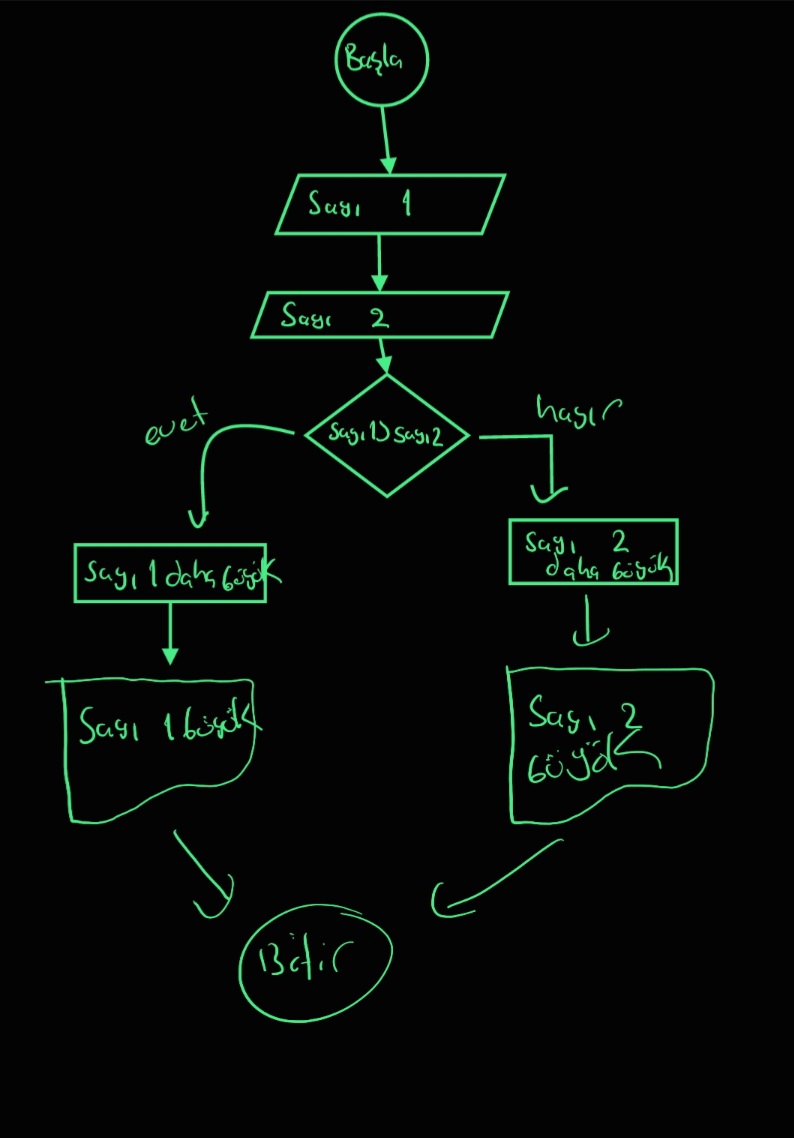 Başla
Sayı 1
Sayı 2
Sayı1>Sayı2
evet
hayır
Sayı 1 daha büyük
Sayı 2
daha büyük
Sayı 1 büyük
Sayı 2
büyük
Bitir